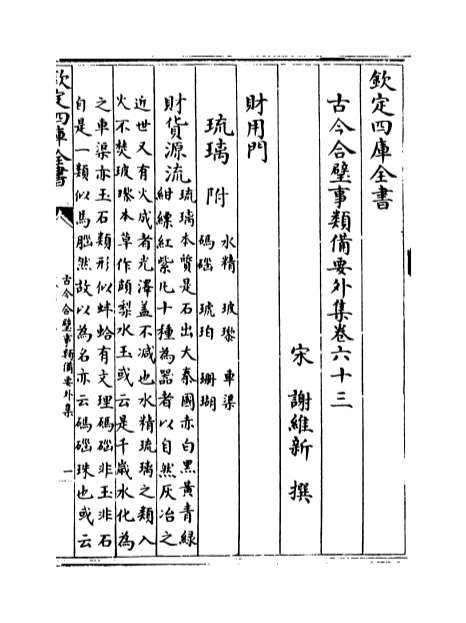 欽定四庫全書
古今合璧事類備要外集卷六十三
宋 謝維新 撰
財用門
琉璃 附 水精 玻瓈 車渠
碼碯 琥珀 珊瑚
財貨源流 琉璃本質是石出大秦國赤白黑黃青綠
紺縹紅紫凡十種為器者以自然灰冶之
近世又有火成者光澤蓋不減也水精琉璃之類入
火不焚玻瓈本草作頗黎水玉或云是千歲水化為
之車渠亦玉石類形似蚌蛤有文理碼碯非玉非石
自是一類似馬腦然故以為名亦云碼碯珠也或云
欽定四庫全書
古今合璧事類備要外集
一